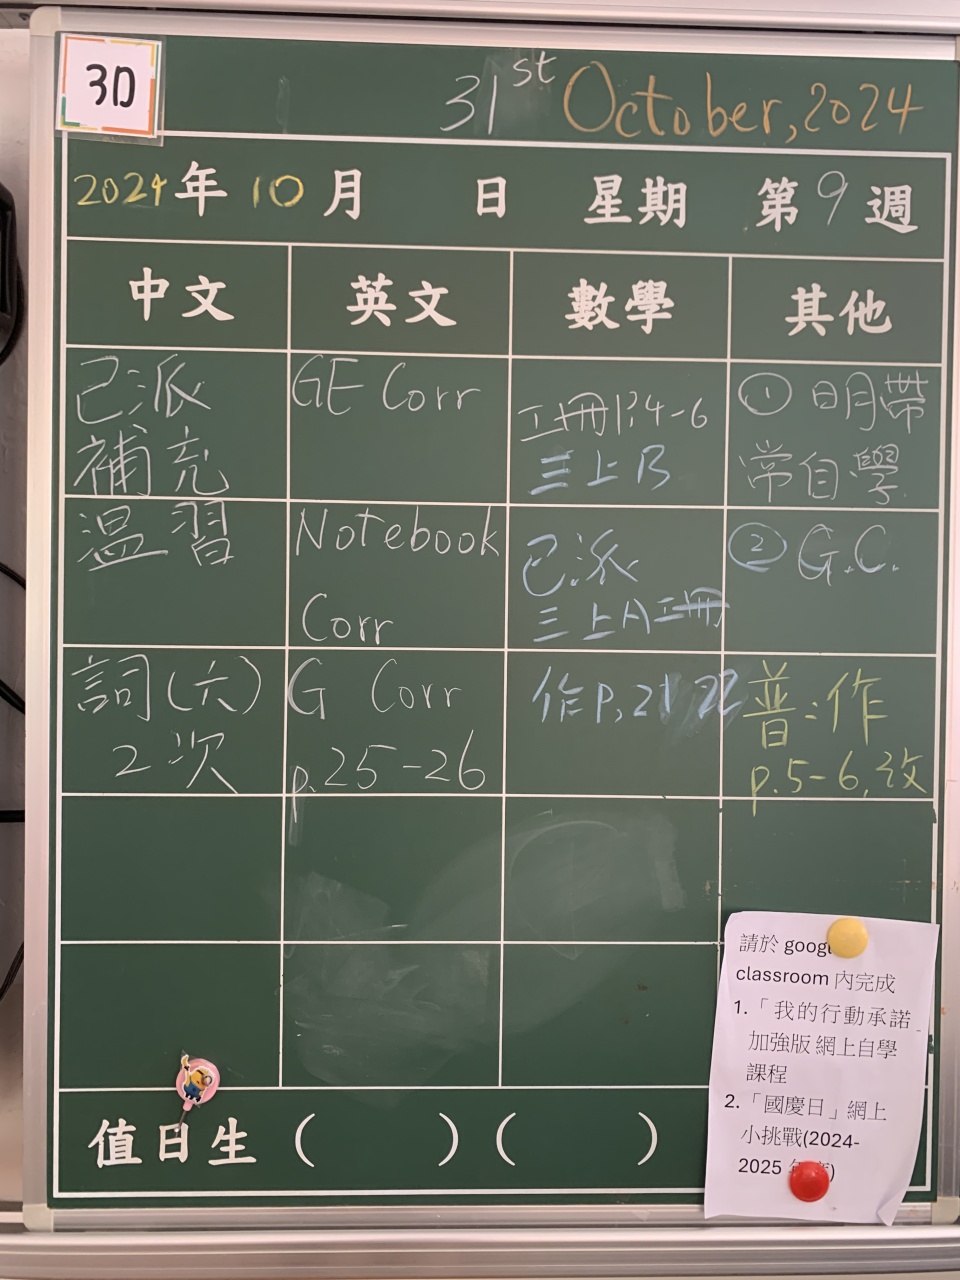 3D
31st October, 2024
2024年10月 日 星期 第9週
中文 英文 數學 其他
已派
補充
溫習
詞(六)
2次
GE Corr
Notebook
Corr
G Corr
p.25-26
工冊P.4-6
三上B
已派
三上A工冊
作P.21 22
① 日月帶
常自學
② G.C.
普:作
p.5-6,改
請於 google
classroom 內完成
1.「我的行動承諾
加強版 網上自學
課程
2.「國慶日」網上
小挑戰(2024-
2025 )
值日生 ( ) ( )